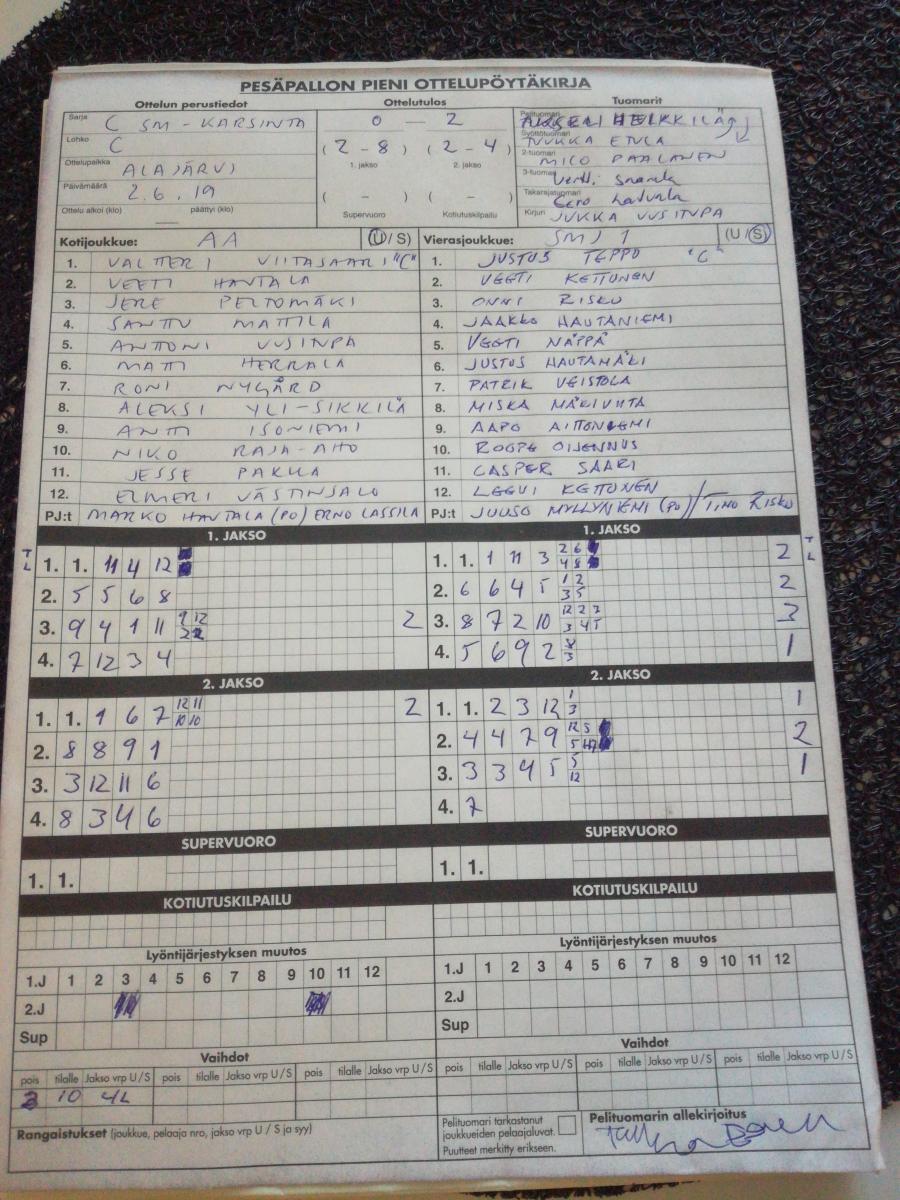 PESÄPALLON PIENI OTTELUPÖYTÄKIRJA
Ottelun perustiedot Ottelutulos Tuomarit
Sarja C SM-KARSINTA
Lohko C
Ottelupaikka ALAJÄRVI
Päivämäärä 2.6.19
Ottelu alkoi (klo) päättyi (klo)
0 – 2
(2 - 8) (2 - 4)
1. jakso 2. jakso
( - ) ( - )
Supervuoro Kotiutuskilpailu
Pelituomari HEIKKILÄ
Syöttötuomari JUKKA ETULA
2-tuomari MICO PAALANEN
3-tuomari
Takarajatuomari Eero
Kirjuri JUKKA UUSITUPA
Kotijoukkue: AA (U / S)
1. VALTTERI VIITASAARI "C"
2. VEETI HAUTALA
3. JERE PELTOMÄKI
4. SANTTU MATTILA
5. ANTTONI UUSITUPA
6. MATTI HERRALA
7. RONI NYGÅRD
8. ALEKSI YLI-SIKKILÄ
9. ANTTI ISONIEMI
10. NIKO RAJA-AHO
11. JESSE PAKKA
12. ELMERI VÄSTINSALO
PJ:t MARKO HAUTALA (PO) ERNO LASSILA
Vierasjoukkue: SMJ 1 (U / S)
1. JUSTUS TEPPO "C"
2. VEETI KETTUNEN
3. ONNI RISKU
4. JAAKKO HAUTANIEMI
5. VEETI NÄPPÄ
6. JUSTUS HAUTAMÄKI
7. PATRIK VEISTOLA
8. MISKA MÄKIVIITA
9. AAPO AITTONIEMI
10. ROOPE OIJENNUS
11. CASPER SAARI
12. LEEVI KETTUNEN
PJ:t JUUSO MYLLYNIEMI (PO) / TIMO RISKU
1. JAKSO
TL
1. 1. 11 4 12
2. 5 5 6 8
3. 9 4 1 11 9 12 2 2 2
4. 7 12 3 4
1. JAKSO
TL
1. 1. 1 11 3 2 6 4 8 2
2. 6 6 4 5 1 2 3 5 2
3. 8 7 2 10 12 2 3 3 4 5 3
4. 5 6 9 2 8 3 1
2. JAKSO
1. 1. 1 6 7 12 11 10 10 2
2. 8 8 9 1
3. 3 12 11 6
4. 8 3 4 6
2. JAKSO
1. 1. 2 3 12 1 3 1
2. 4 4 7 9 12 5 5 2
3. 3 3 4 5 5 12 1
4. 7
SUPERVUORO SUPERVUORO
1. 1. 1. 1.
KOTIUTUSKILPAILU KOTIUTUSKILPAILU
Lyöntijärjestyksen muutos Lyöntijärjestyksen muutos
1.J 1 2 3 4 5 6 7 8 9 10 11 12 1.J 1 2 3 4 5 6 7 8 9 10 11 12
2.J 2.J
Sup Sup
Vaihdot Vaihdot
pois tilalle Jakso vrp U / S pois tilalle Jakso vrp U / S pois tilalle Jakso vrp U / S pois tilalle Jakso vrp U / S pois tilalle Jakso vrp U / S pois tilalle Jakso vrp U / S
3 10 4L
Rangaistukset (joukkue, pelaaja nro, jakso vrp U / S ja syy)
Pelituomari tarkastanut
joukkueiden pelaajaluvat.
Puutteet merkitty erikseen.
Pelituomarin allekirjoitus